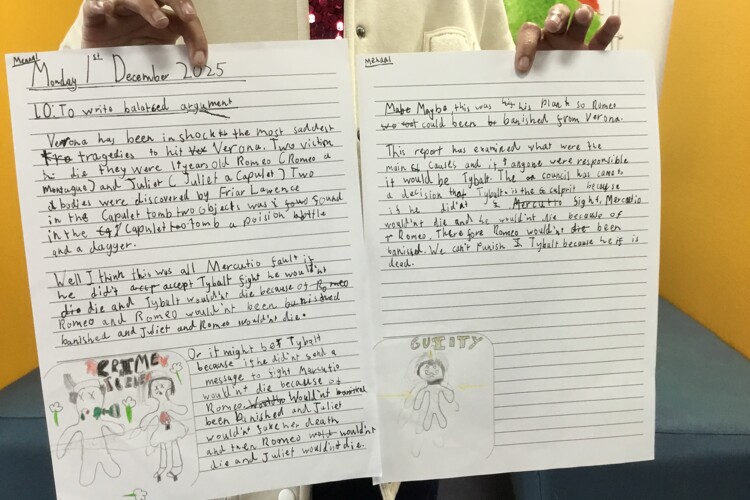 Mensal
Monday 1st December 2025
LO: To write balatced argument
Verona has been in shock to the most saddest
tragedies to hit Verona. Two victim
die they were 14 years old Romeo (Romeo a
Montague) and Juliet (Juliet a Capulet) Two
dbodies were discovered by Friar Lawrence
in the Capulet tomb two objects was found
in the Capulet tomb a poision bottle
and a dagger.
Well I think this was all Mercutio fault if
he didn't accept Tybalt fight he wouldn't
die and Tybalt wouldn't die because of Romeo
Romeo and Romeo wouldn't been banished
banished and Juliet and Romeo wouldn't die.
CRIME
SCENE
Or it might be Tybalt
because if he didn't send a
message to fight Mercutio
wouldn't die because of
Romeo Wouldn't
been banished and Juliet
wouldn't fake her death
and then Romeo wouldn't
die and Juliet wouldn't die.
Mensal
Maybe this was his plan so Romeo
could been banished from Verona.
This report has examined what were the
main causes and if anyone were responsible
it would be Tybalt. The council has came to
a decision that Tybalt is the culprit because
if he didn't Mercutio fight, Mercutio
wouldn't die and he wouldn't die because of
Romeo. Therefore Romeo wouldn't been
banished. We can't punish Tybalt because he is
dead.
GUILTY